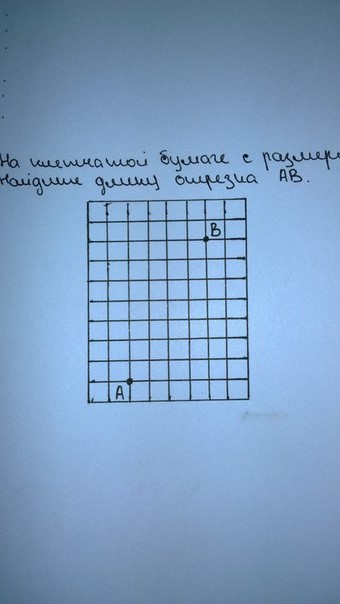 На клетчатой бумаге с размер
Найдите длину отрезка АВ.
В
А